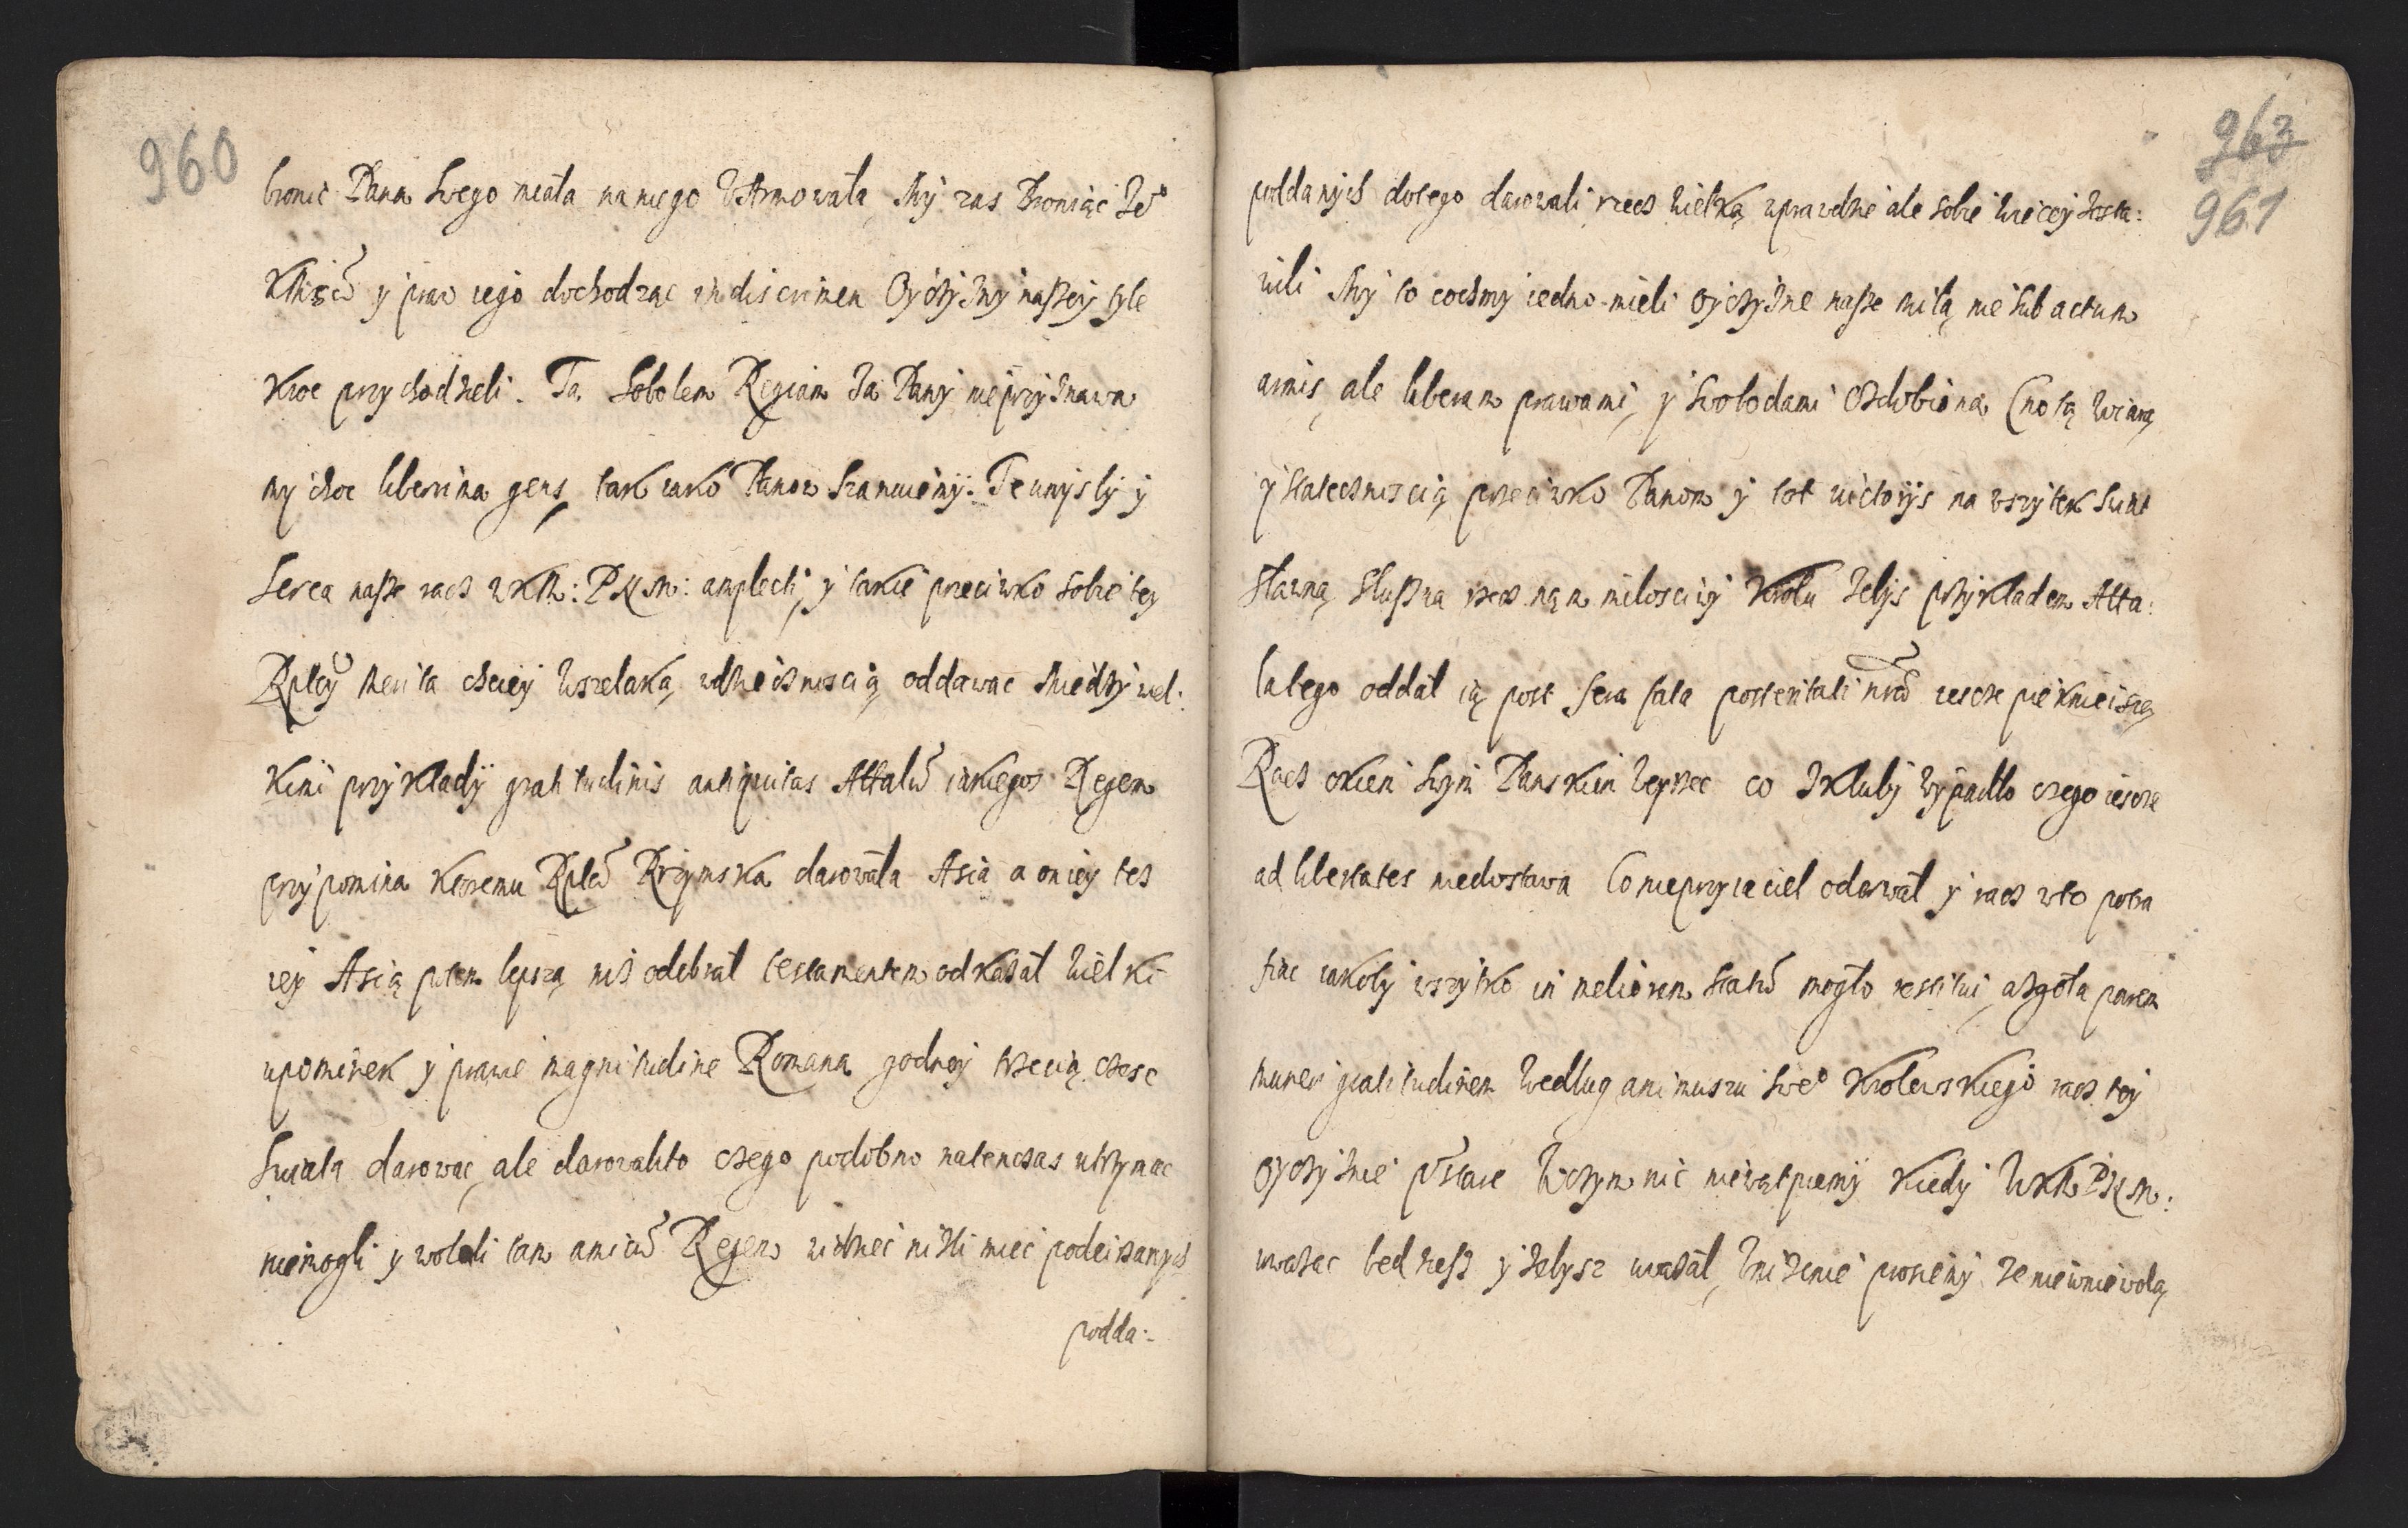 960
bronic Pana swego miała na niego Usarmowała, My zas Broniąc Je°
KMści y praw iego dochodząc in discrimen Oyczyzny naszey tyle
kroc przychodzieli. Ta Sobolem Regiam za Pany nieprzyznawa
my choc liberrima gens, tak iako Panow szanuiemy. Te umysly y
serca nasze racz WKM: PNM: amplecti, y takie przeciwko sobie tey
Rptey merita chciey wszelaką wdziecznoscią oddawac Miedzy wiel:
kimi przyklady gratitudinis antiquitas Attalum iakiegos Regem
przypomina ktoremu Rplta Rzymska darowała Asią a on iey tes
iey Asią potem lepszą niz odebrał testamentem odkazał Wielki
upominek y prawie magnitudine Romana godny trzecią czesc
Swiata darowac, ale darowali to czego podobno natenczas utrzymac
niemogli y woleli tam amicum Regem widziec nizli miec podeirzanych
podda:
963
961
poddanych dotego darowali rzecz wielką wprawdzie ale sobie wiecey zosta:
wili My to cochmy iedno mieli oyczyzne nasze miłą nie subactam
armis, ale liberam prawami, y swobodami ozdobiona Cnotą wiarą
y statecznoscią przeciwko Panom y tot victoriis na wszytek swiat
sławną słuszna rzecz nam miłosciwy Krolu zebys przykladem Atta:
lalego oddał ią post sera fata posteritati nrae iescze pieknieiszą
Racz okiem swym Panskim weyrzec co z kluby wypadło czego iescze
ad libertates niedostawa Co nieprzyiaciel oderwał y racz w to potra
fiac iakoby wszytko in meliorem statum mogło restitui, a zgoła parem
muneri gratitudinem według animuszu swe° Krolewskiego racz tey
oyczyznie postare W czym nic niewątpiemy kiedy WKM PNM:
uwazac bedziesz y zebysz uwazał, unizenie prosiemy ze nie w niewolą